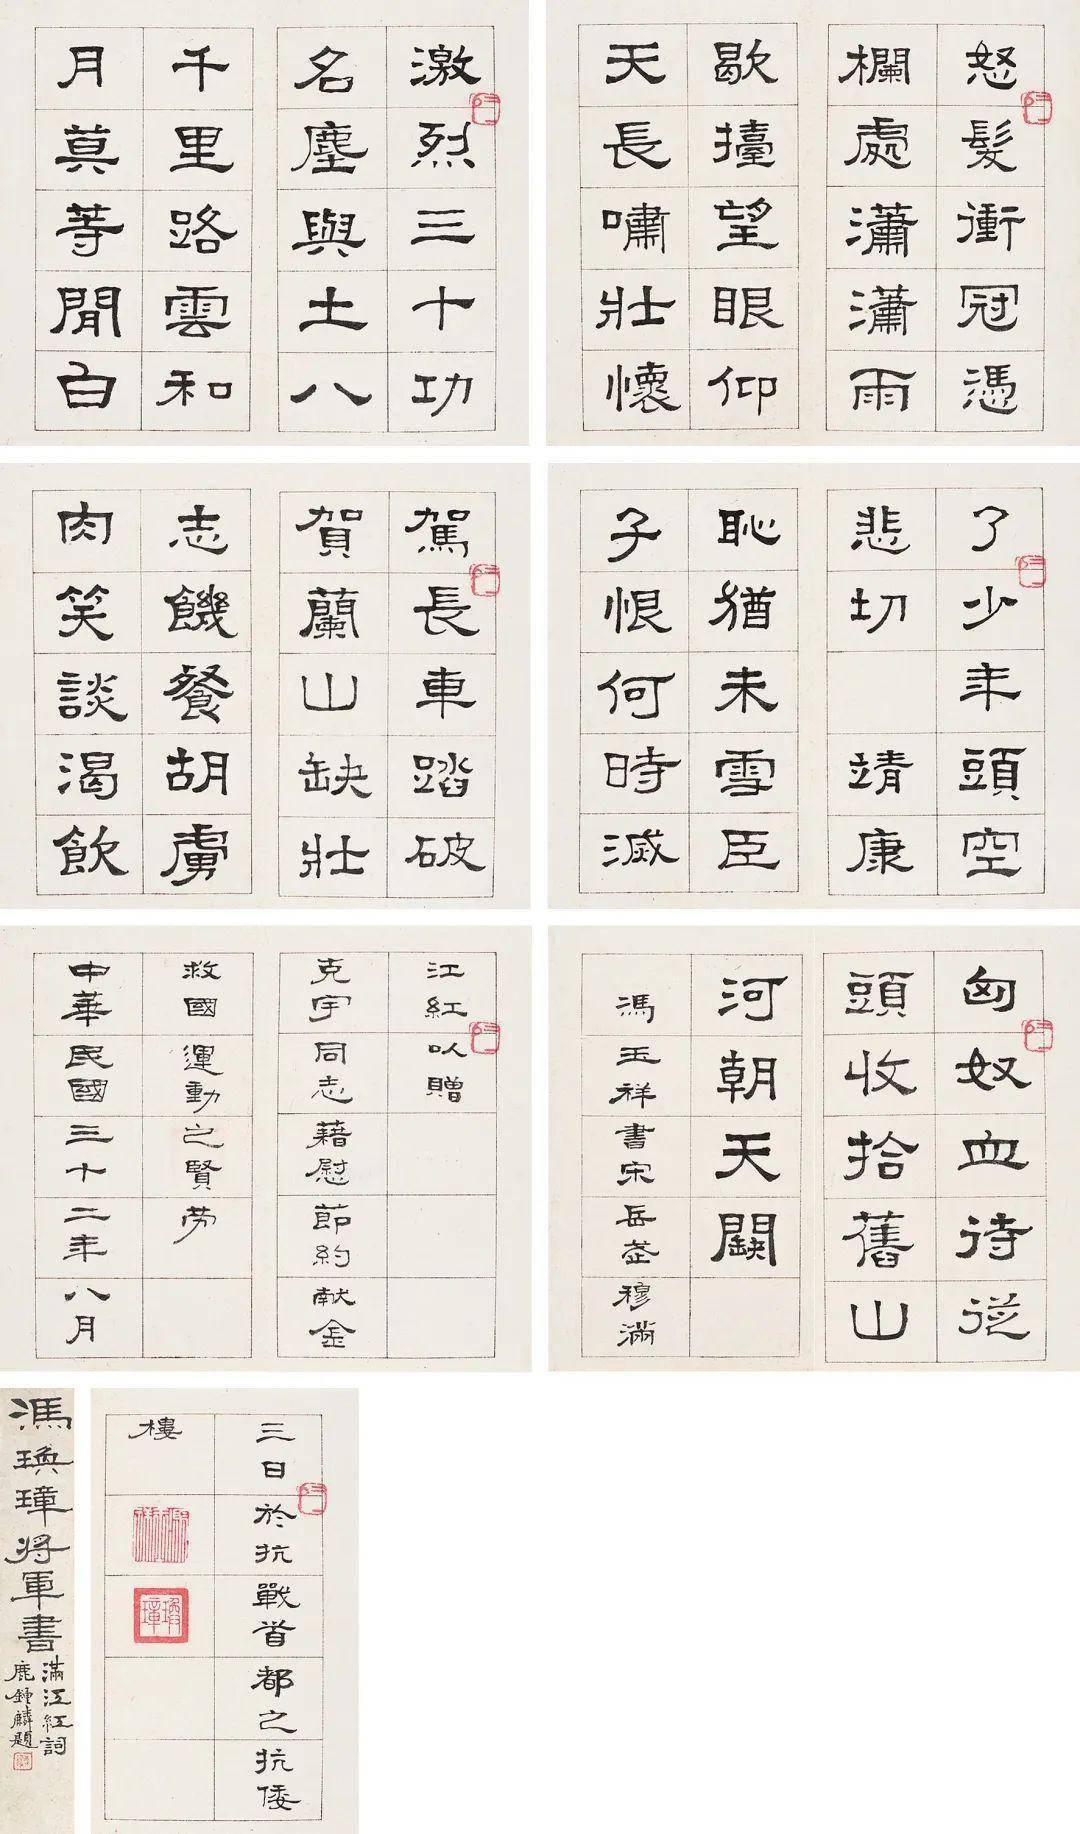 怒髮衝冠憑
欄處瀟瀟雨
歇擡望眼仰
天長嘯壯懷
激烈三十功
名塵與土八
千里路雲和
月莫等閒白
了少年頭空
悲切 靖康
恥猶未雪臣
子恨何時滅
駕長車踏破
賀蘭山缺壯
志饑餐胡虜
肉笑談渴飲
匈奴血待從
頭收拾舊山
河朝天闕
馮玉祥書宋岳武穆滿
江紅以贈
克宇同志藉慰節約献金
救國運動之賢勞
中華民國三十二年八月
三日於抗戰首都之抗倭
樓
馮瑍璋將軍書
滿江紅詞
鹿鍾麟題